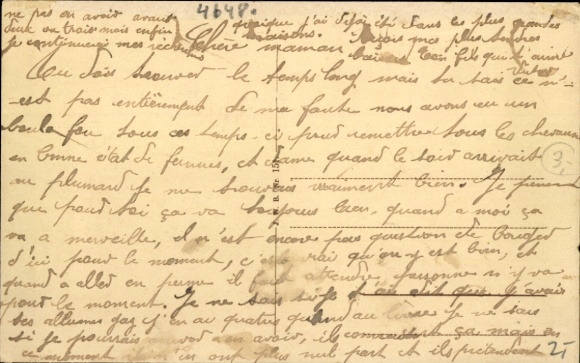 4648.
Chère maman
Tu dois trouver le temps long mais tu sais ce n'-
est pas entièrement de ma faute nous avons eu un
boulot fou tous ces temps-ci pour remettre tous les chevaux
en bonne état de ferrures, et dame quand le soir arrivait
au plumard je me trouvais vraiment bien. Je pense
que pour toi ça va toujours bien, quand a moi ça
va a merveille, il n'est encore pas question de bouger
d'ici pour le moment, c'est vrai qu'on y est bien, et
quand a aller en perme il faut attendre personne n'y va
pour le moment. Je ne sais si je t'ai dit que j'avais
tes allume gaz j'en ai quatre quand au livre je ne sais
si je pourrais avoir, ils
ce moment ils n'en ont plus nul part et ils prétendent
ne pas en avoir avant
deux ou trois mois enfin
je continuerais mes recherches
quoique j'ai déjà été dans les plus grandes
maisons. Reçois mes plus tendres
baisers Ton fils qui t'aime
3,-
2,-